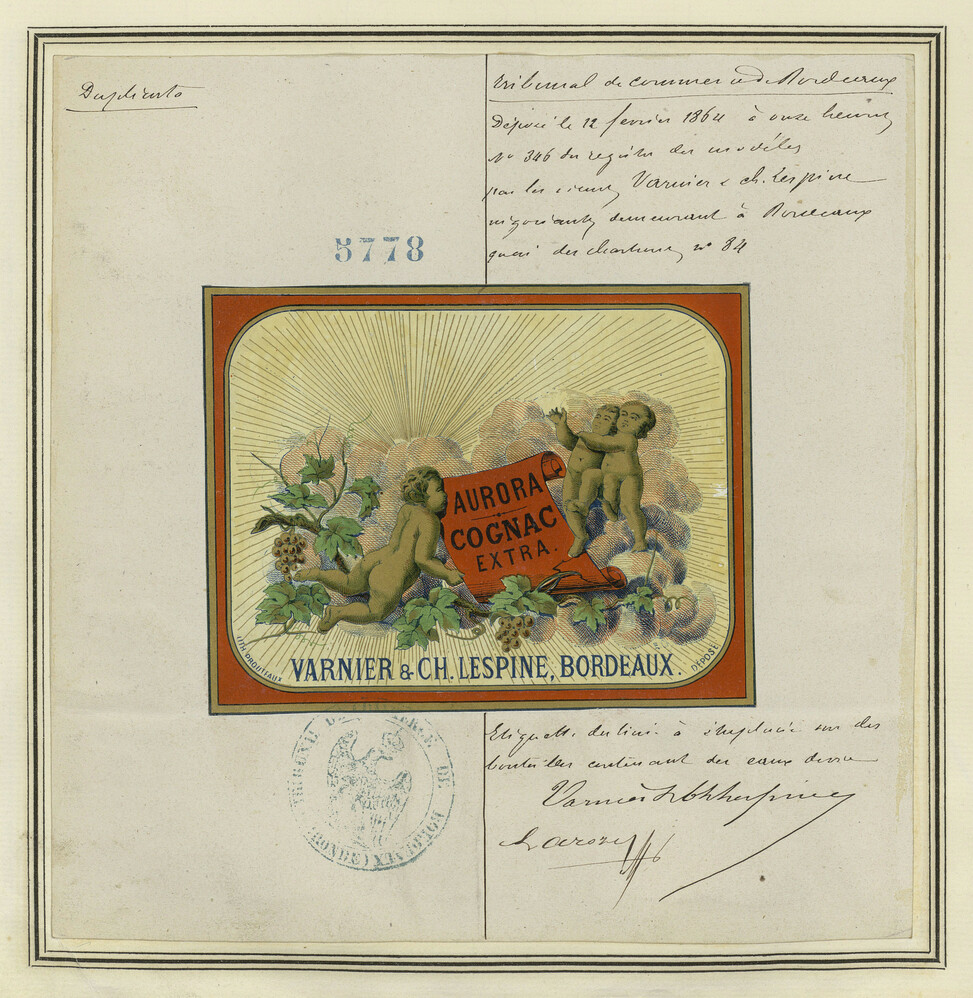 Duplicata
Tribunal de commerce de Bordeaux
Déposé le 12 fevrier 1864 à onze heures
No 346 du registre des modèles
par les sieurs Varnier & ch. Lespine
négociants demeurant à Bordeaux
quai des chartrons no 84
5778
AURORA
COGNAC
EXTRA.
LITH. DROUTEAUX
VARNIER & CH. LESPINE, BORDEAUX.
DÉPOSÉ
TRIBUNAL DE COMMERCE DE BORDEAUX (GIRONDE)
Etiquette destinée à être placée sur des
bouteilles contenant des eaux de vie
Varnier & Ch Lespine